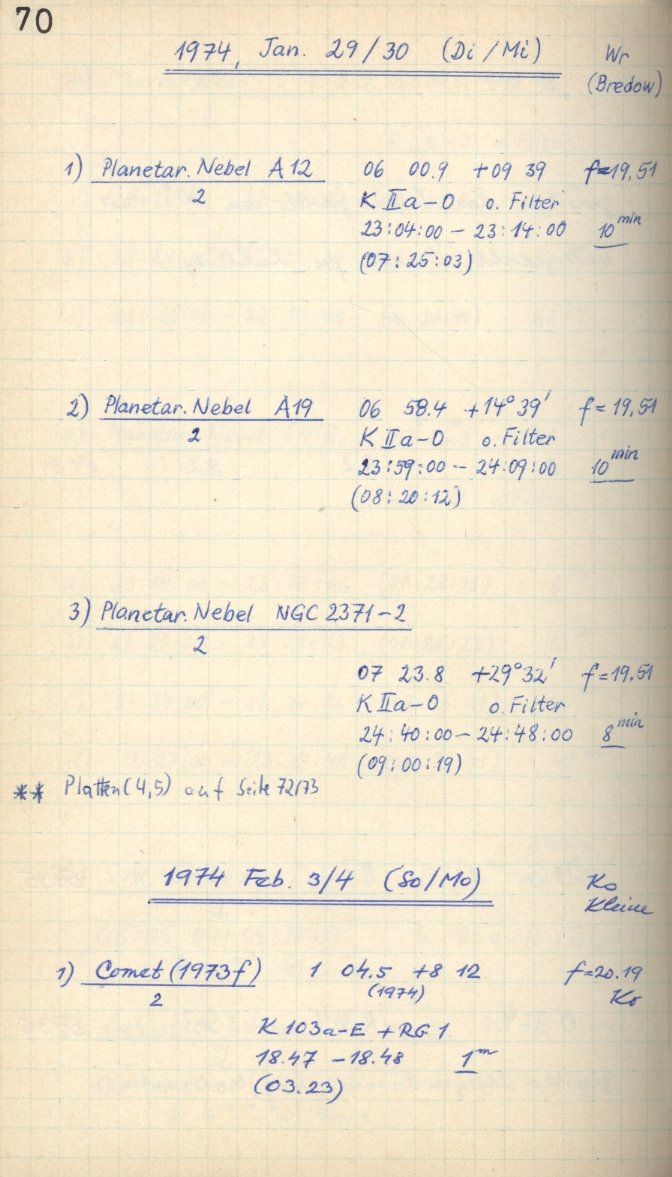 70
1974, Jan. 29/30 (Di/Mi) Wr
(Bredow)
1) Planetar. Nebel A12 06 00.9 +09 39 f=19,51
2 K IIa-O o. Filter
23:04:00 - 23:14:00 10 min
(07:25:03)
2) Planetar. Nebel A19 06 58.4 +14° 39' f=19,51
2 K IIa-O o. Filter
23:59:00 - 24:09:00 10 min
(08:20:12)
3) Planetar. Nebel NGC 2371-2
2
07 23.8 +29° 32' f=19.51
K IIa-O o. Filter
24:40:00 - 24:48:00 8 min
(09:00:19)
** Platten (4,5) auf Seite 72/73
1974 Feb. 3/4 (So/Mo) Ko
Kleine
1) Comet (1973f) 1 04.5 +8 12 f=20.19
2 (1974) Ko
K 103a-E + RG 1
18.47 - 18.48 1 m
(03.23)